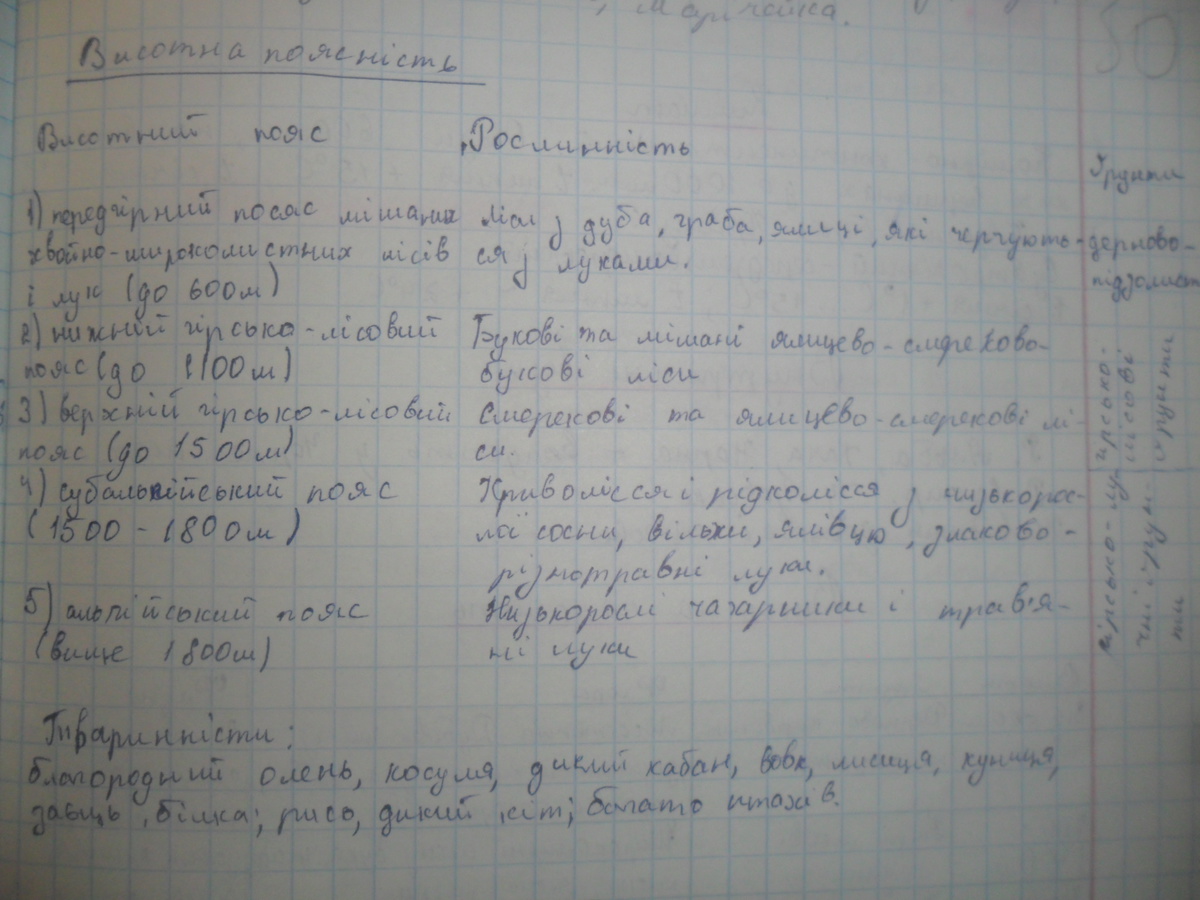 Марічайка.
50
Висотна поясність
Висотний пояс Рослинність
Ґрунти
1) передгірний посяс мішаних ліси з дуба, граба, ялиці, які чергують- дерново-
хвойно-широколистних лісів ся з луками. підзолист
і лук (до 600м)
2) нижній гірсько-лісовий Букові та мішані ялицево-смреково-
пояс (до 1100м) букові ліси
гірсько-
лісові
ґрунти
3) верхній гірсько-лісовий Смерекові та ялицево-смерекові лі-
пояс (до 1500м) си.
4) субальпійський пояс Криволісся і рідколісся з низькорос-
(1500 - 1800м) лої сосни, вільхи, ялівцю, злаково-
різнотравні луки.
гірсько-лу-
чні ґрун-
ти
5) альпійський пояс Низькорослі чагарники і трав'я-
(вище 1800м) ні луки
Тваринність:
благородний олень, косуля, дикий кабан, вовк, лисиця, куниця,
заєць, білка; рись, дикий кіт; багато птахів.